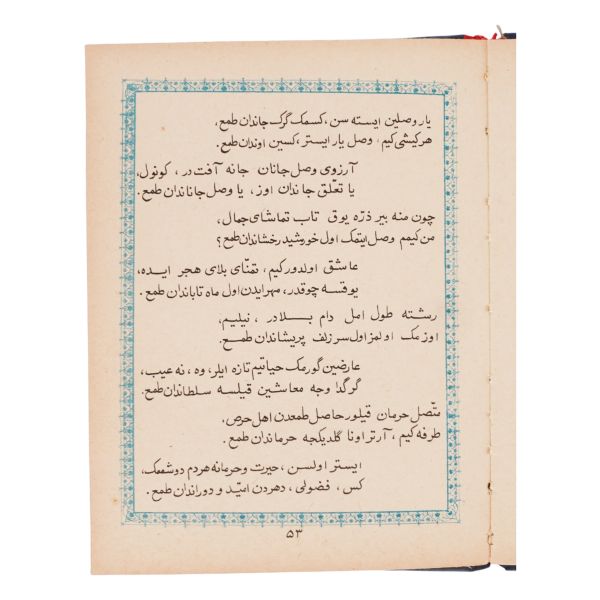 یار وصلین ایسته سن، کسمک گرک جاندان طمع،
هر کیشی کیم، وصل یار ایستر، کسین اوندان طمع.
آرزوی وصل جانان جانه آفت در، کونول،
یا تعلّق جاندان اوز، یا وصل جاناندان طمع.
چون منه بیر ذرّه یوق تاب تماشای جمال،
من کیمم وصل ایتمک اول خورشید رخشاندان طمع؟
عاشق اولدور کیم، تمنّای بلای هجر ایده،
یوقسه چوقدور، مهر ایدن اول ماه تاباندان طمع.
رشته طول امل دام بلادر، نیلیم،
اوزمک اولمز اول سر زلف پریشاندان طمع.
عارضین گورمک حیاتیم تازه ایلر، وه، نه عیب،
گر گدا وجه معاشین قیلسه سلطاندان طمع.
متّصل حرمان قیلور حاصل طمعدن اهل حرص،
طرفه کیم، آرتر اونا گلدیکجه حرماندان طمع.
ایستر اولسن، حیرت و حرمانه هردم دوشممک،
کس، فضولی، دهردن امّید و دوراندان طمع.
۵۳